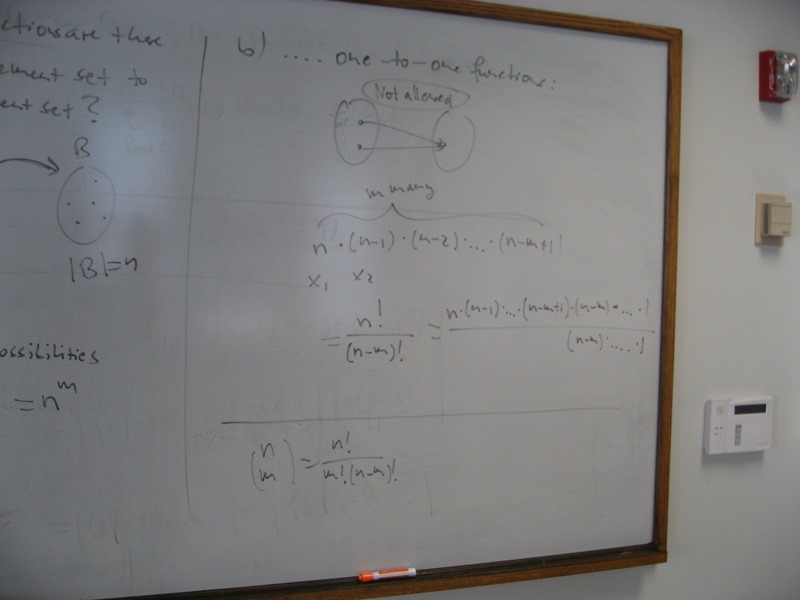 ctions are there
ement set to
ent set?
B
|B|=n
ossibilities
= n^m
b) .... one-to-one functions:
Not allowed
m many
n · (n-1) · (n-2) · ... · (n-m+1)
x₁ x₂
= n! / (n-m)! = n·(n-1)·...·(n-m+1)·(n-m)·...·1 / (n-m)·....·1
(n m) = n! / m!(n-m)!